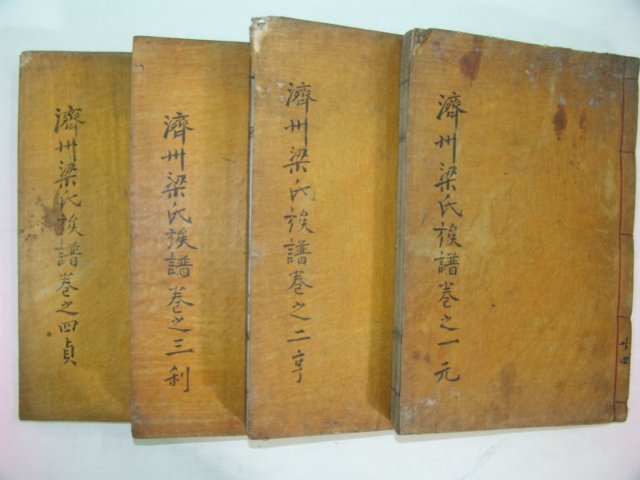 濟州梁氏族譜卷之一元
共四
濟州梁氏族譜卷之二亨
濟州梁氏族譜卷之三利
濟州梁氏族譜卷之四貞